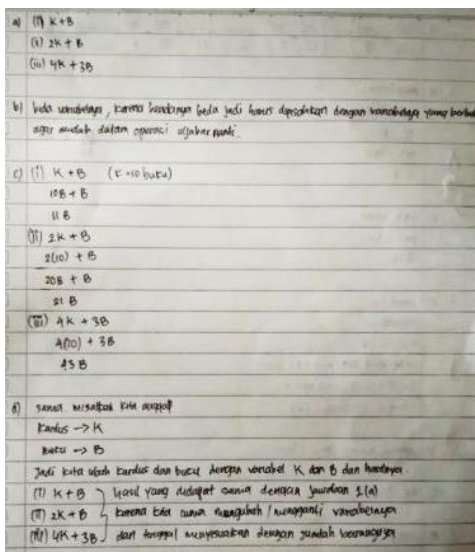 a) (i) K+B
(ii) 2K + B
(iii) 4K + 3B
b) beda variabelnya, karena bendanya beda jadi harus dipisahkan dengan variabelnya yang
agar mudah dalam operasi aljabar nanti.
c) (i) K + B (K = 10 buku)
10B + B
11 B
(ii) 2K + B
2(10) + B
20B + B
21 B
(iii) 4K + 3B
4(10) + 3B
43B
d) sama. misalkan kita
Kardus → K
Buku → B
Jadi kita ubah kardus dan buku dengan variabel K dan B dan
(i) K + B hasil yang didapat sama dengan jawaban 1(a)
(ii) 2K + B karena kita cuma mengubah / mengganti variabelnya
(iii) 4K + 3B dan tinggal menyesuaikan dengan jumlah barangnya